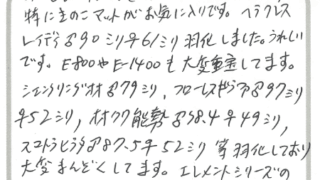 特にきのこマットがお気に入りです。ヘラクレス
レイディ♂90ミリ♀61ミリ羽化しました。うれしい
です。E-800やE-1400も大変重宝してます。
シェンクリングオオ♂79ミリ、フローレスギラファ♂97ミリ
♀52ミリ、オオクワ能勢♂78.4♀49ミリ、
スマトラヒラタ♂87.5♀52ミリ 等羽化しており
大変まんぞくしてます。エレメントシリーズの